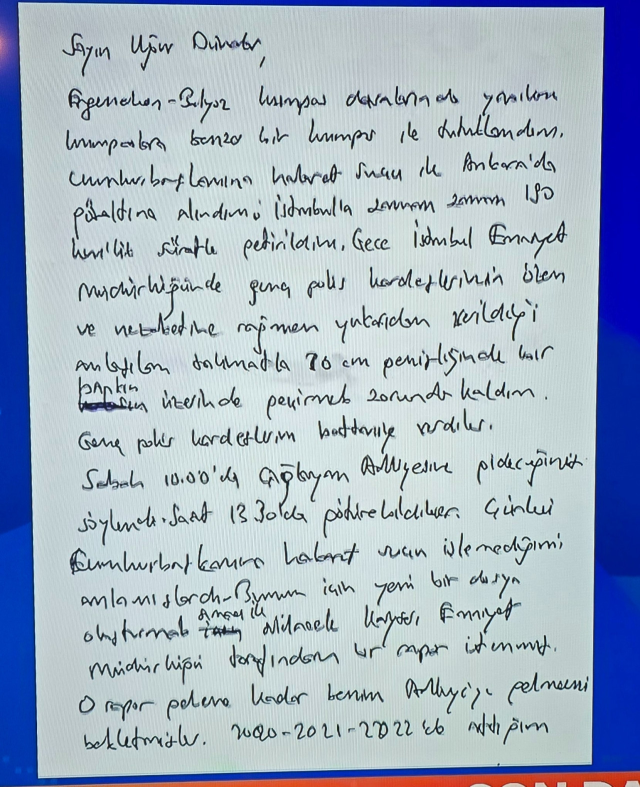 Sayın Uğur Dündar,
Ergenekon-Balyoz kumpas davalarında yaşanan
kumpaslara benzer bir kumpas ile tutuklandım.
Cumhurbaşkanına hakaret suçu ile Ankara'da
gözaltına alındım; İstanbul'a zaman zaman 190
km'lik süratle getirildim. Gece İstanbul Emniyet
Müdürlüğünde genç polis kardeşlerimin özen
ve nezaketine rağmen yukarıdan verildiği
anlaşılan talimatla 70 cm genişliğinde bir
bankın üzerinde geçirmek zorunda kaldım.
Genç polis kardeşlerim battaniye verdiler.
Sabah 10.00'da Çağlayan Adliyesine gideceğimiz
söylendi. Saat 13.30'da götürebildiler. Çünkü
Cumhurbaşkanına hakaret suçu işlemediğimi
anlamışlardı. Bunun için yeni bir dosya
oluşturmak amacı ile Kayseri Emniyet
Müdürlüğü tarafından bir rapor istenmiş.
O rapor gelene kadar benim Adliyeye gelmemi
bekletmişler. 2020-2021-2022'de attığım
SON DA